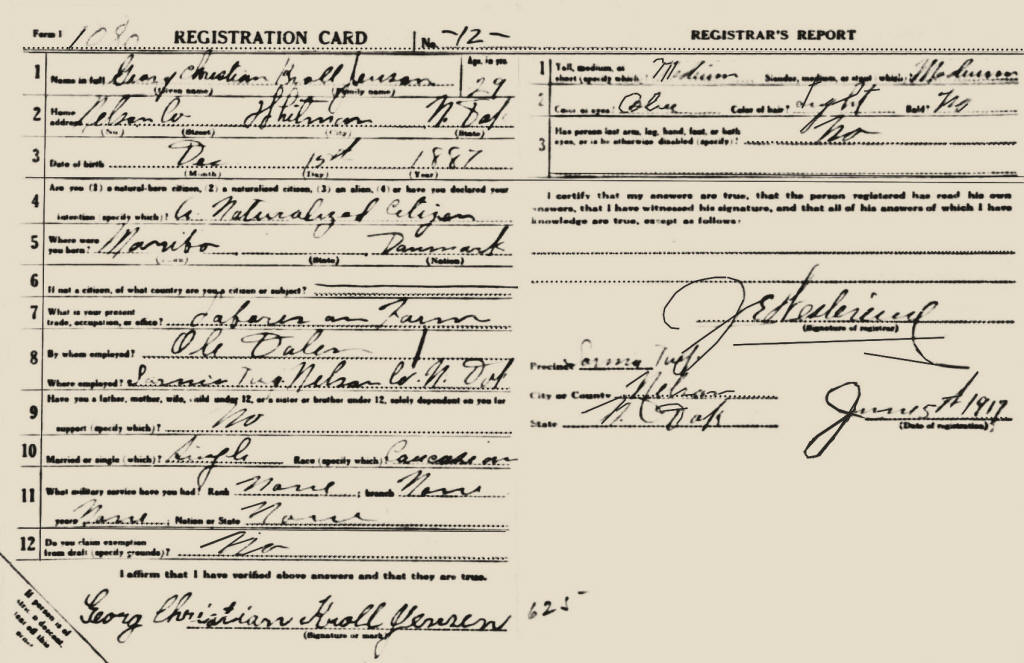 Form 1 1080 REGISTRATION CARD No. -12-
1 Name in full Georg Christian Kroll Jensen Age, in yrs. 29
(Given name) (Family name)
2 Home address Nelson Co Whitman N. Dak
(No.) (Street) (City) (State)
3 Date of birth Dec 15th 1887
(Month) (Day) (Year)
4 Are you (1) a natural-born citizen, (2) a naturalized citizen, (3) an alien, (4) or have you declared your
intention (specify which)? A Naturalized Citizen
5 Where were you born? Maribo Danmark
(Town) (State) (Nation)
6 If not a citizen, of what country are you a citizen or subject?
7 What is your present trade, occupation, or office? Laborer on Farm
8 By whom employed? Ole Dalen
Where employed? Sarnia Twp Nelson Co. N. Dak
9 Have you a father, mother, wife, child under 12, or a sister or brother under 12, solely dependent on you for
support (specify which)? No
10 Married or single (which)? Single Race (specify which)? Caucasian
11 What military service have you had? Rank None ; branch None
years None ; Nation or State None
12 Do you claim exemption from draft (specify grounds)? No
I affirm that I have verified above answers and that they are true.
Georg Christian Kroll Jensen
(Signature or mark)
If person is of
REGISTRAR'S REPORT
1 Tall, medium, or short (specify which)? Medium Slender, medium, or stout (which)? Medium
2 Color of eyes? Color of hair? Light Bald? No
3 Has person lost arm, leg, hand, foot, or both eyes, or is he otherwise disabled (specify)? No
I certify that my answers are true, that the person registered has read his own
answers, that I have witnessed his signature, and that all of his answers of which I have
knowledge are true, except as follows:
(Signature of registrar)
Precinct Sarnia Twp
City or County Nelson
State N. Dak
June 5th 1917
(Date of registration)
625